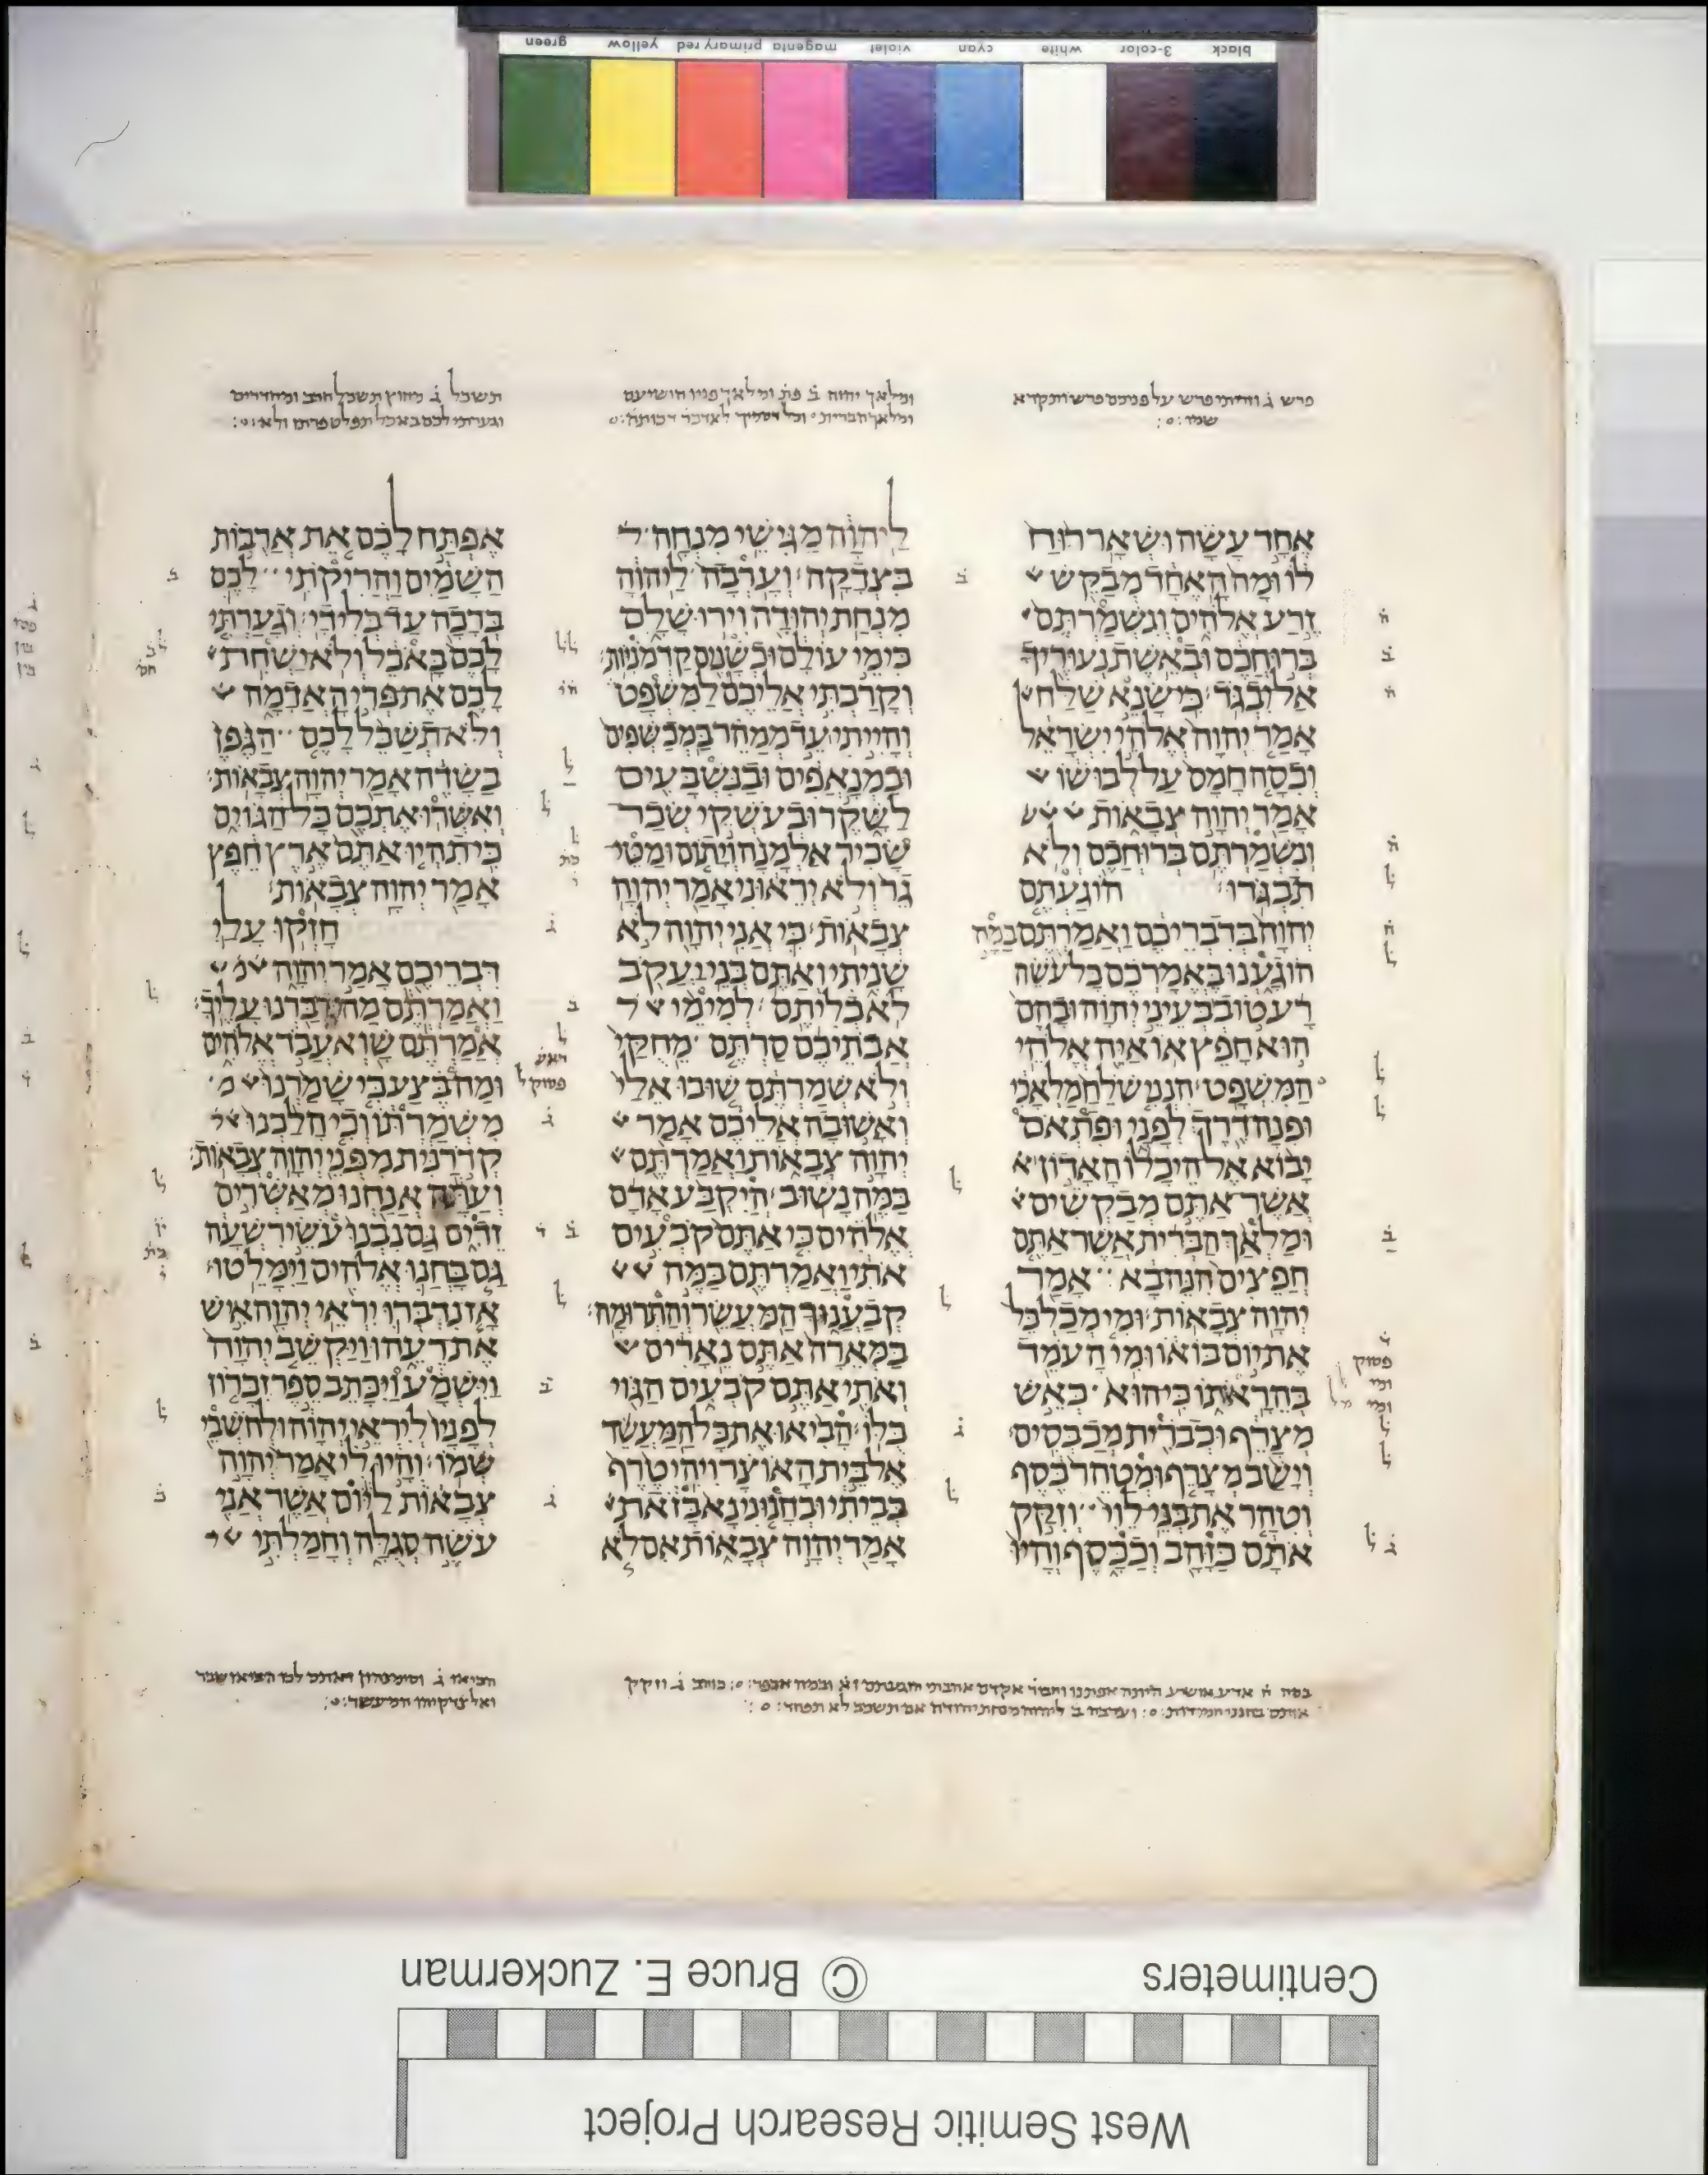 green yellow primary red magenta violet cyan white 3-color black
אֶחָד עָשָׂה וּשְׁאָר רוּחַ
לוֹ וּמָה הָאֶחָד מְבַקֵּשׁ
זֶרַע אֱלֹהִים וְנִשְׁמַרְתֶּם
בְּרוּחֲכֶם וּבְאֵשֶׁת נְעוּרֶיךָ
אַל יִבְגֹּד׃ כִּי שָׂנֵא שַׁלַּח
אָמַר יְהוָה אֱלֹהֵי יִשְׂרָאֵל
וְכִסָּה חָמָס עַל לְבוּשׁוֹ
אָמַר יְהוָה צְבָאוֹת
וְנִשְׁמַרְתֶּם בְּרוּחֲכֶם וְלֹא
תִבְגֹּדוּ׃ הוֹגַעְתֶּם
יְהוָה בְּדִבְרֵיכֶם וַאֲמַרְתֶּם בַּמָּה
הוֹגָעְנוּ בֶּאֱמָרְכֶם כָּל עֹשֵׂה
רָע טוֹב בְּעֵינֵי יְהוָה וּבָהֶם
הוּא חָפֵץ אוֹ אַיֵּה אֱלֹהֵי
הַמִּשְׁפָּט׃ הִנְנִי שֹׁלֵחַ מַלְאָכִי
וּפִנָּה דֶרֶךְ לְפָנָי וּפִתְאֹם
יָבוֹא אֶל הֵיכָלוֹ הָאָדוֹן
אֲשֶׁר אַתֶּם מְבַקְשִׁים
וּמַלְאַךְ הַבְּרִית אֲשֶׁר אַתֶּם
חֲפֵצִים הִנֵּה בָא אָמַר
יְהוָה צְבָאוֹת׃ וּמִי מְכַלְכֵּל
אֶת יוֹם בּוֹאוֹ וּמִי הָעֹמֵד
בְּהֵרָאוֹתוֹ כִּי הוּא כְּאֵשׁ
מְצָרֵף וּכְבֹרִית מְכַבְּסִים׃
וְיָשַׁב מְצָרֵף וּמְטַהֵר כֶּסֶף
וְטִהַר אֶת בְּנֵי לֵוִי וְזִקַּק
אֹתָם כַּזָּהָב וְכַכָּסֶף וְהָיוּ
לַיהוָה מַגִּישֵׁי מִנְחָה
בִּצְדָקָה׃ וְעָרְבָה לַיהוָה
מִנְחַת יְהוּדָה וִירוּשָׁלִָם
כִּימֵי עוֹלָם וּכְשָׁנִים קַדְמֹנִיּוֹת׃
וְקָרַבְתִּי אֲלֵיכֶם לַמִּשְׁפָּט
וְהָיִיתִי עֵד מְמַהֵר בַּמְכַשְּׁפִים
וּבַמְנָאֲפִים וּבַנִּשְׁבָּעִים
לַשָּׁקֶר וּבְעֹשְׁקֵי שְׂכַר
שָׂכִיר אַלְמָנָה וְיָתוֹם וּמַטֵּי
גֵר וְלֹא יְרֵאוּנִי אָמַר יְהוָה
צְבָאוֹת׃ כִּי אֲנִי יְהוָה לֹא
שָׁנִיתִי וְאַתֶּם בְּנֵי יַעֲקֹב
לֹא כְלִיתֶם׃ לְמִימֵי
אֲבֹתֵיכֶם סַרְתֶּם מֵחֻקַּי
וְלֹא שְׁמַרְתֶּם שׁוּבוּ אֵלַי
וְאָשׁוּבָה אֲלֵיכֶם אָמַר
יְהוָה צְבָאוֹת וַאֲמַרְתֶּם
בַּמֶּה נָשׁוּב׃ הֲיִקְבַּע אָדָם
אֱלֹהִים כִּי אַתֶּם קֹבְעִים
אֹתִי וַאֲמַרְתֶּם בַּמֶּה
קְבַעֲנוּךָ הַמַּעֲשֵׂר וְהַתְּרוּמָה׃
בַּמְּאֵרָה אַתֶּם נֵאָרִים
וְאֹתִי אַתֶּם קֹבְעִים הַגּוֹי
כֻּלּוֹ׃ הָבִיאוּ אֶת כָּל הַמַּעֲשֵׂר
אֶל בֵּית הָאוֹצָר וִיהִי טֶרֶף
בְּבֵיתִי וּבְחָנוּנִי נָא בָּזֹאת
אָמַר יְהוָה צְבָאוֹת אִם לֹא
אֶפְתַּח לָכֶם אֵת אֲרֻבּוֹת
הַשָּׁמַיִם וַהֲרִיקֹתִי לָכֶם
בְּרָכָה עַד בְּלִי דָי׃ וְגָעַרְתִּי
לָכֶם בָּאֹכֵל וְלֹא יַשְׁחִת
לָכֶם אֶת פְּרִי הָאֲדָמָה
וְלֹא תְשַׁכֵּל לָכֶם הַגֶּפֶן
בַּשָּׂדֶה אָמַר יְהוָה צְבָאוֹת׃
וְאִשְּׁרוּ אֶתְכֶם כָּל הַגּוֹיִם
כִּי תִהְיוּ אַתֶּם אֶרֶץ חֵפֶץ
אָמַר יְהוָה צְבָאוֹת׃
חָזְקוּ עָלַי
דִּבְרֵיכֶם אָמַר יְהוָה
וַאֲמַרְתֶּם מַה נִּדְבַּרְנוּ עָלֶיךָ׃
אֲמַרְתֶּם שָׁוְא עֲבֹד אֱלֹהִים
וּמַה בֶּצַע כִּי שָׁמַרְנוּ
מִשְׁמַרְתּוֹ וְכִי הָלַכְנוּ
קְדֹרַנִּית מִפְּנֵי יְהוָה צְבָאוֹת׃
וְעַתָּה אֲנַחְנוּ מְאַשְּׁרִים
זֵדִים גַּם נִבְנוּ עֹשֵׂי רִשְׁעָה
גַּם בָּחֲנוּ אֱלֹהִים וַיִּמָּלֵטוּ׃
אָז נִדְבְּרוּ יִרְאֵי יְהוָה אִישׁ
אֶת רֵעֵהוּ וַיַּקְשֵׁב יְהוָה
וַיִּשְׁמָע וַיִּכָּתֵב סֵפֶר זִכָּרוֹן
לְפָנָיו לְיִרְאֵי יְהוָה וּלְחֹשְׁבֵי
שְׁמוֹ׃ וְהָיוּ לִי אָמַר יְהוָה
צְבָאוֹת לַיּוֹם אֲשֶׁר אֲנִי
עֹשֶׂה סְגֻלָּה וְחָמַלְתִּי
Centimeters © Bruce E. Zuckerman
West Semitic Research Project